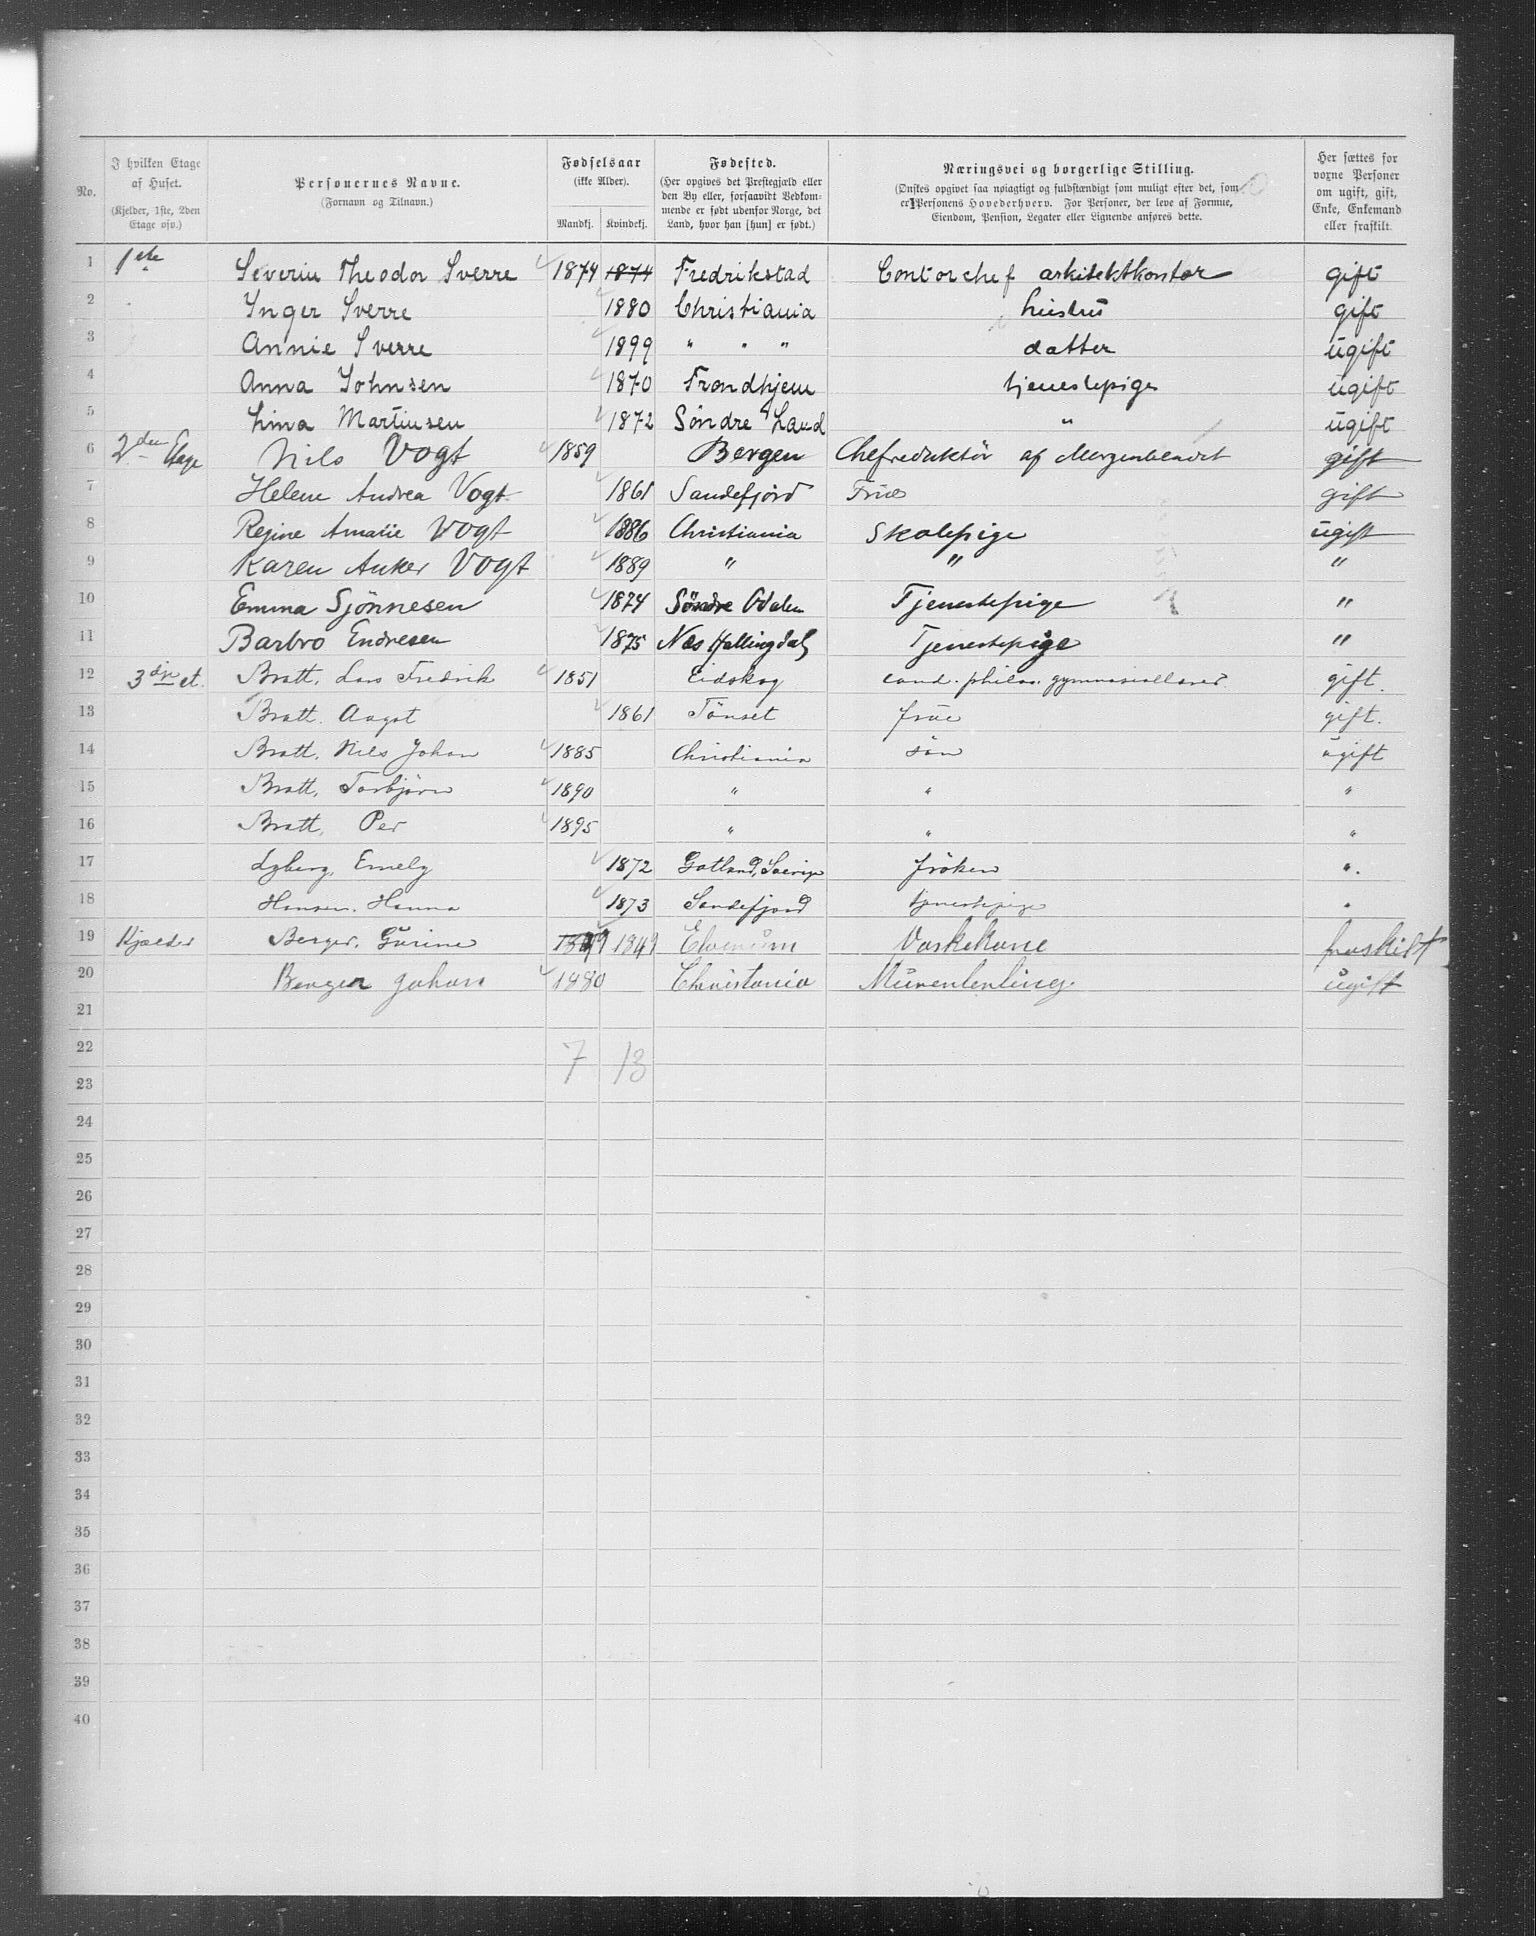 No. | I hvilken Etage af Huset. (Kjelder, 1ste, 2den Etage osv.) | Personernes Navne. (Fornavn og Tilnavn.) | Fødselsaar (ikke Alder). Mandkj. | Kvindekj. | Fødested. (Her opgives det Prestegjæld eller den By eller, forsaavidt Vedkommende er født udenfor Norge, det Land, hvor han [hun] er født.) | Næringsvei og borgerlige Stilling. (Ønskes opgivet saa nøiagtigt og fuldstændigt som muligt efter det, som er Personens Hovederhverv. For Personer, der leve af Formue, Eiendom, Pension, Legater eller Lignende anføres dette. | Her sættes for voxne Personer om ugift, gift, Enke, Enkemand eller fraskilt.
1 | 1ste | Severin Theodor Sverre | 1874 | 1874 | Fredrikstad | Contorchef arkitektkontor | gift
2 | Inger Sverre | 1880 | Christiania | hustru | gift
3 | Annie Sverre | 1899 | " " " | datter | ugift
4 | Anna Johnsen | 1870 | Trondhjem | tjenestepige | ugift
5 | Lina Martinsen | 1872 | Søndre Land | " | ugift
6 | 2den Etage | Nils Vogt | 1859 | Bergen | Chefredaktör af Morgenbladet | gift
7 | Helene Andrea Vogt | 1861 | Sandefjord | Frue | gift
8 | Regine Amalie Vogt | 1886 | Christiania | Skolepige | ugift
9 | Karen Anker Vogt | 1889 | " | " | "
10 | Emma Sjönnesen | 1874 | Söndre Odalen | Tjenestepige | "
11 | Barbro Endresen | 1875 | Næs Hallingdal | Tjenestepige | "
12 | 3dje et. | Bratt, Lars Fredrik | 1851 | Eidskog | cand. philos. gymnasiallærer | gift.
13 | Bratt. Aagot | 1861 | Tönset | frue | gift.
14 | Bratt, Nils Johan | 1885 | Christiania | sön | ugift
15 | Bratt, Torbjörn | 1890 | " | " | "
16 | Bratt, Per | 1895 | " | " | "
17 | Lyberg, Emely | 1872 | Gotland, Sverige | fröken | "
18 | Hansen. Hanna | 1873 | Sandefjord | tjenestepige | "
19 | Kjælder | Berger, Gurine | 1849 | 1849 | Elverum | Vaskekone | fraskilt
20 | Berger Johan | 1880 | Christania | Murerlerling. | ugift
21
22 | 7 | 13
23
24
25
26
27
28
29
30
31
32
33
34
35
36
37
38
39
40